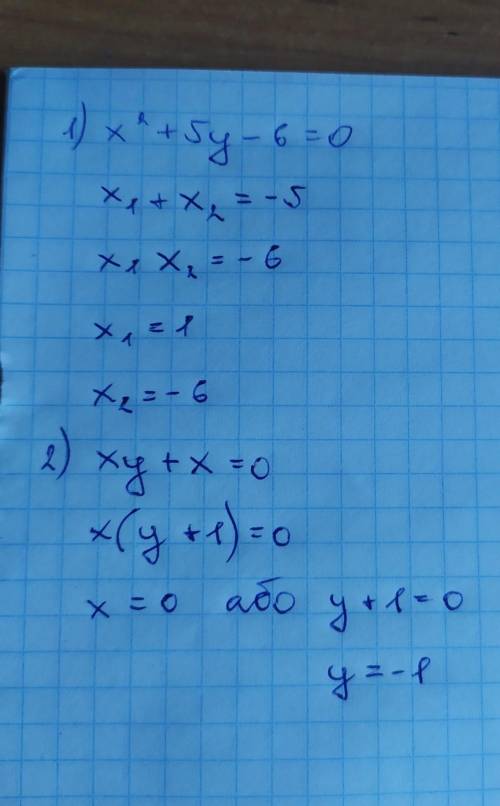 1) x² + 5y - 6 = 0
x₁ + x₂ = -5
x₁ x₂ = -6
x₁ = 1
x₂ = -6
2) xy + x = 0
x(y + 1) = 0
x = 0 або y + 1 = 0
y = -1